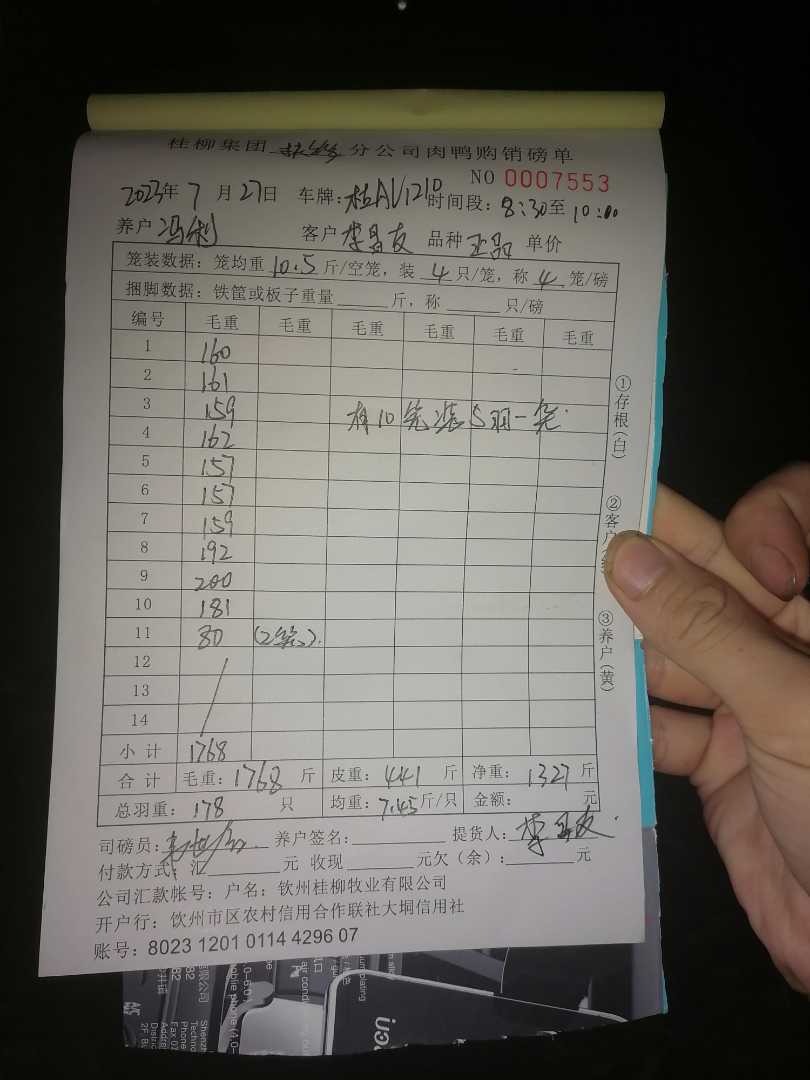 桂柳集团 分公司肉鸭购销磅单
NO 0007553
2023年 7 月 27日 车牌: 桂AV1210 时间段: 8:30至 10:00
养户 冯利 客户 李昌友 品种 单价
笼装数据: 笼均重 10.5 斤/空笼, 装 4 只/笼, 称 4 笼/磅
捆脚数据: 铁筐或板子重量 斤, 称 只/磅
编号 毛重 毛重 毛重 毛重 毛重 毛重
1 160
2 161
3 159 有10笼装5羽一笼.
4 162
5 157
6 157
7 159
8 192
9 200
10 181
11 80 (2笼).
12
13
14
小计 1768
合计 毛重: 1768 斤 皮重: 441 斤 净重: 1327 斤
总羽重: 178 只 均重: 7.45斤/只 金额: 元
司磅员: 养户签名: 提货人: 李昌友
付款方式: 汇 元 收现 元欠(余): 元
公司汇款帐号: 户名: 钦州桂柳牧业有限公司
开户行: 饮州市区农村信用合作联社大垌信用社
账号: 8023 1201 0114 4296 07
①存根(白)
②客户
③养户(黄)